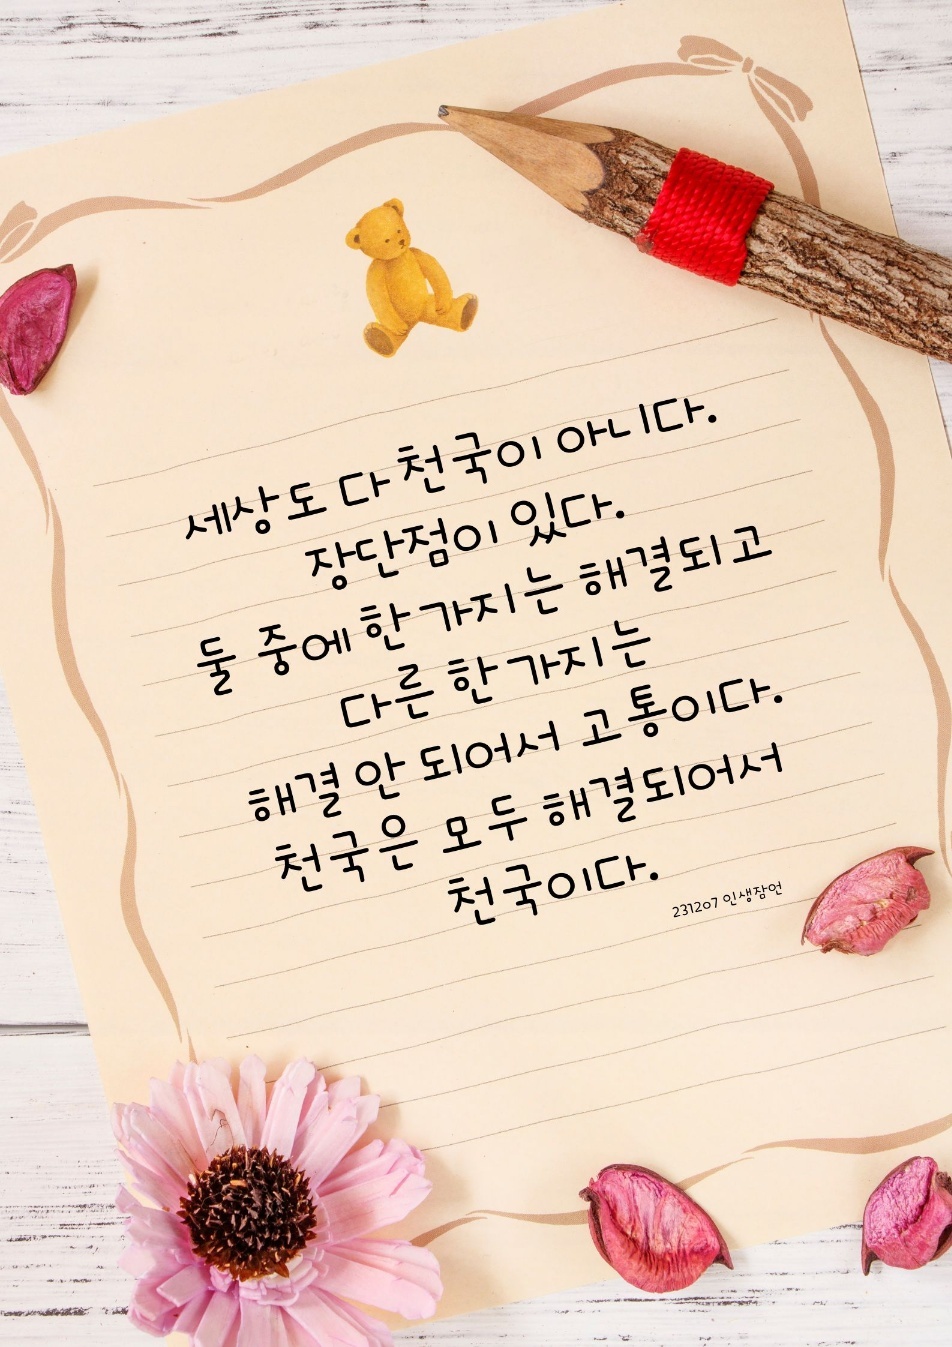 세상도 다 천국이 아니다.
장단점이 있다.
둘 중에 한 가지는 해결되고
다른 한 가지는
해결 안 되어서 고통이다.
천국은 모두 해결되어서
천국이다.
231207 인생잠언